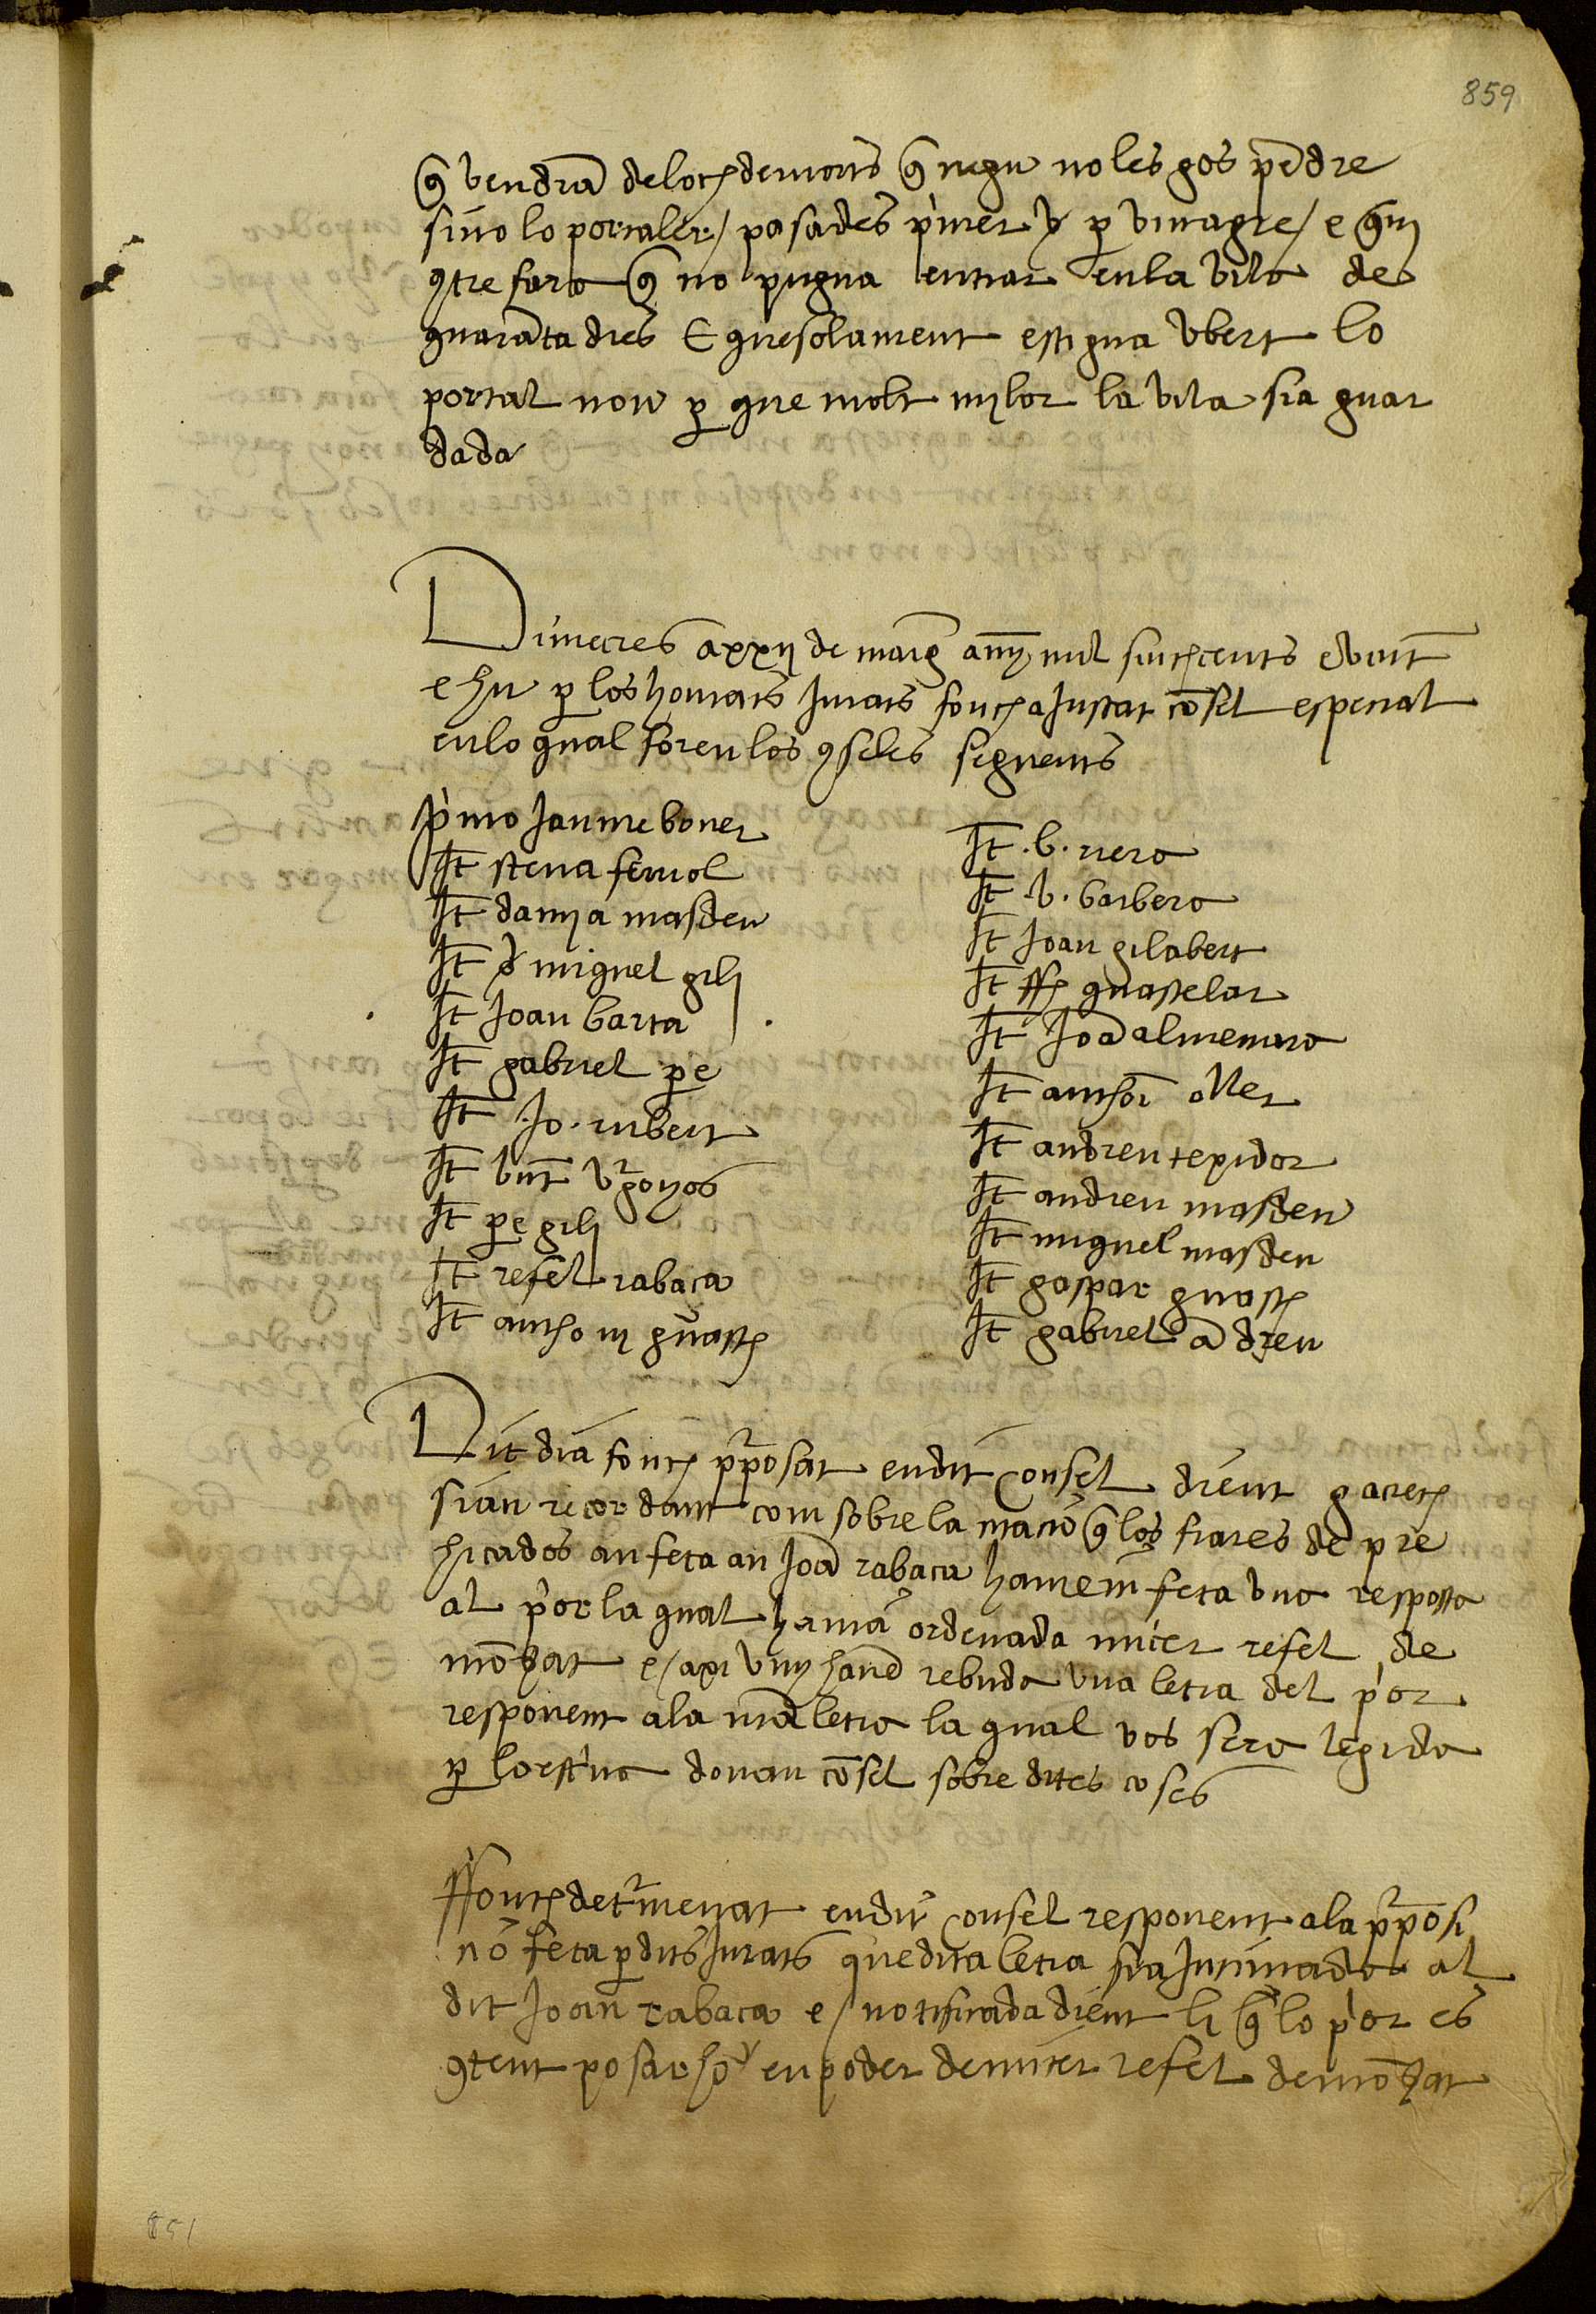 859
q̃ vendrã de lochs de morts q̃ negu no les gos pẽdre
sino lo portaler / pasades pimer p vinagre / e qui
9tre fara q̃ no pugua entrar en la vila de
guarãta dies E que solament estigua vbert lo
portal nou p que molt mylor la vila sia guar
dada
Dimecres a xxij de març any mil sinchcents e vint
e hu p los honrats Jurats fonch aJustat cõsel especial
en lo qual foren los 9seles seguents
pimo Jaume boner
It steua ferriol
It damya masdeu
It miquel gili
It Joan barta
It gabriel pe
It Jo. rubert
It vint vrgoyos
It pe gili
It refel rabaca
It anthony guasch
It .b. riera
It .b. barbera
It Joan gilabert
It ffs guastelar
It Joã almenara
It anthoi oller
It andreu texidor
It andreu masdeu
It miquel masdeu
It gaspar guasch
It gabriel ãdreu
Dit dia fonch pposat en dit consel dient ga crech
sian recordant com sobre la citacio q̃ los frares de pre
hicados an feta an Joã rabaca haviem feta vna resposta
al pior la qual havia ordenada micer refel de
mõtzat e / axi vuy havẽ rebuda vna letra del pior
responent a la nrã letra la qual vos sera legida
p lo escriva donau cõsel sobre dites coses
Ffonch detminat en dit consel responent a la pposi
cio feta p dits Jurats que dita letra sia Intimada al
dit Joan rabaca e / notificada dient li q̃ lo pior es
9tent posar ho en poder de micer refel de mõtzat
851